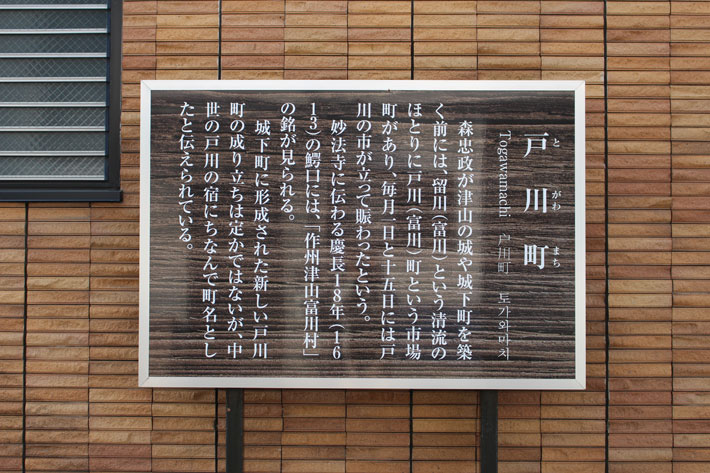 戸川町
と がわ まち
Togawamachi 户川町 토가와마치
森忠政が津山の城や城下町を築
く前には、留川(富川)という清流の
ほとりに戸川(富川)町という市場
町があり、毎月一日と十五日には戸
川の市が立って賑わったという。
妙法寺に伝わる慶長18年(16
13)の鰐口には、「作州津山富川村」
の銘が見られる。
城下町に形成された新しい戸川
町の成り立ちは定かではないが、中
世の戸川の宿にちなんで町名とし
たと伝えられている。